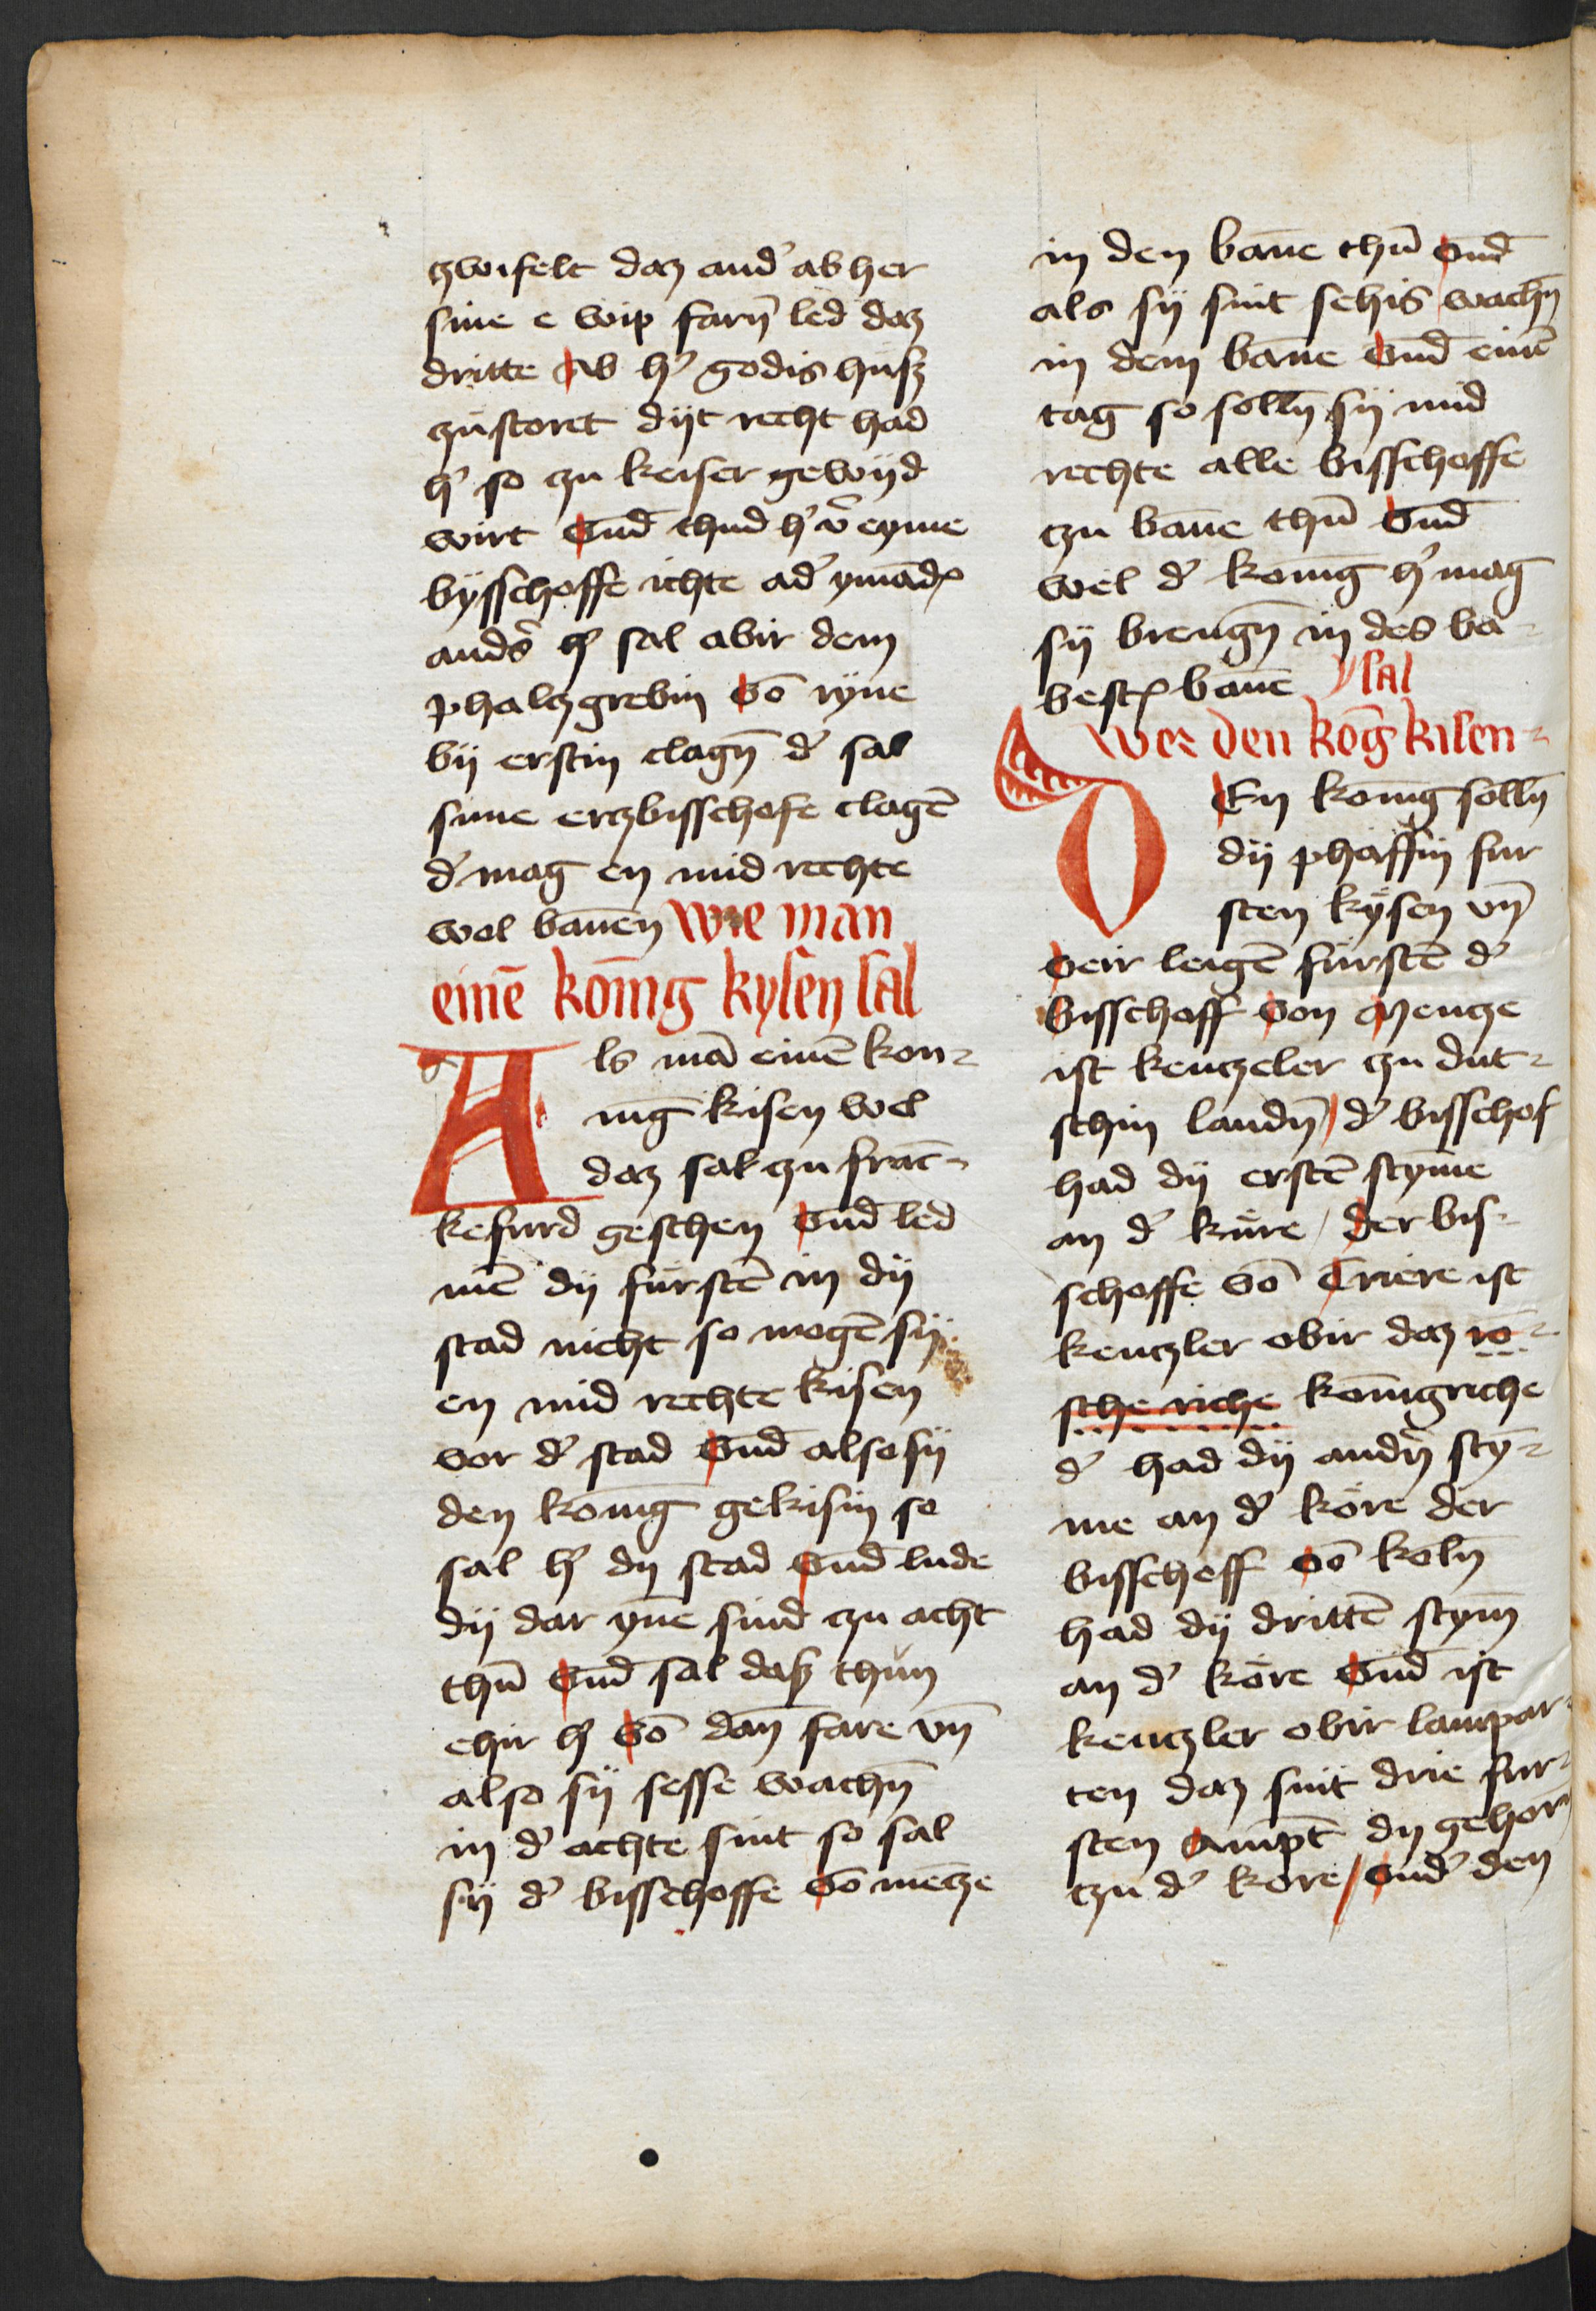 zwifelt daz and͛ ab her
sine e wip farn̄ led daz
dritte Ab h͛ godis husz
zustoret dijt recht had
h͛ so zu keiser gewijd
wirt Vnd̄ thud h͛ v͛ eyme
bysschoffe ichte ad͛ ymād
and͛s h͛ sal abir dem
phalczgrebin vō ryne
bij erstin clagn̄ d͛ sal
sime erczbisschofe clagē
d͛ mag en mid rechte
wol bannen wie man
einē konig kysen sal
Als mā einē kon
nig kisen wel
daz sal czu franc
kefurd geschen Vnd̄ led
mē dij furstē in dij
stad nicht so mogē sij
en mid rechte kisen
vor d͛ stad Vnd̄ also sij
den konig gekisin so
sal h͛ dy stad Vnd̄ lude
dij dar yn̄e sind czu acht
thū Vnd̄ sal dasz thun
ehir h͛ vō dan̄ fare vn̄
also sij sesse wachn̄
in d͛ achte sint so sal
sij d͛ bisschoffe vō mēcze
in den ban̄e thū Vnd̄
als sij sint sehis wachn̄
in dem ban̄e Vnd̄ einē
tag so solln̄ sij mid
rechte alle bisschoffe
czu ban̄e thū Vnd̄
wel d͛ konig h͛ mag
sij brengn̄ in des ba
best ban̄e sal
wer den kōg kisen
DEn konig solln̄
dij phaffin fur
sten kysen vn̄
veir leigē furstē d͛
bisschoff von Mencze
ist kenczeler czu dut
schin landn̄ d͛ bisschof
had dij erstē stym̄e
an d͛ kure / der bis
schoffe vō Triere ist
kenczler obir daz ro
sche riche konigriche
d͛ had dij andn̄ sty
me an d͛ kore der
bisschoff vō koln̄
had dij drittē stym̄
an d͛ kore Vnd̄ ist
kenczler obir lampar
ten daz sint drie fur
sten Ampt dy gehorn̄
czu d͛ kore / Vnd͛ den